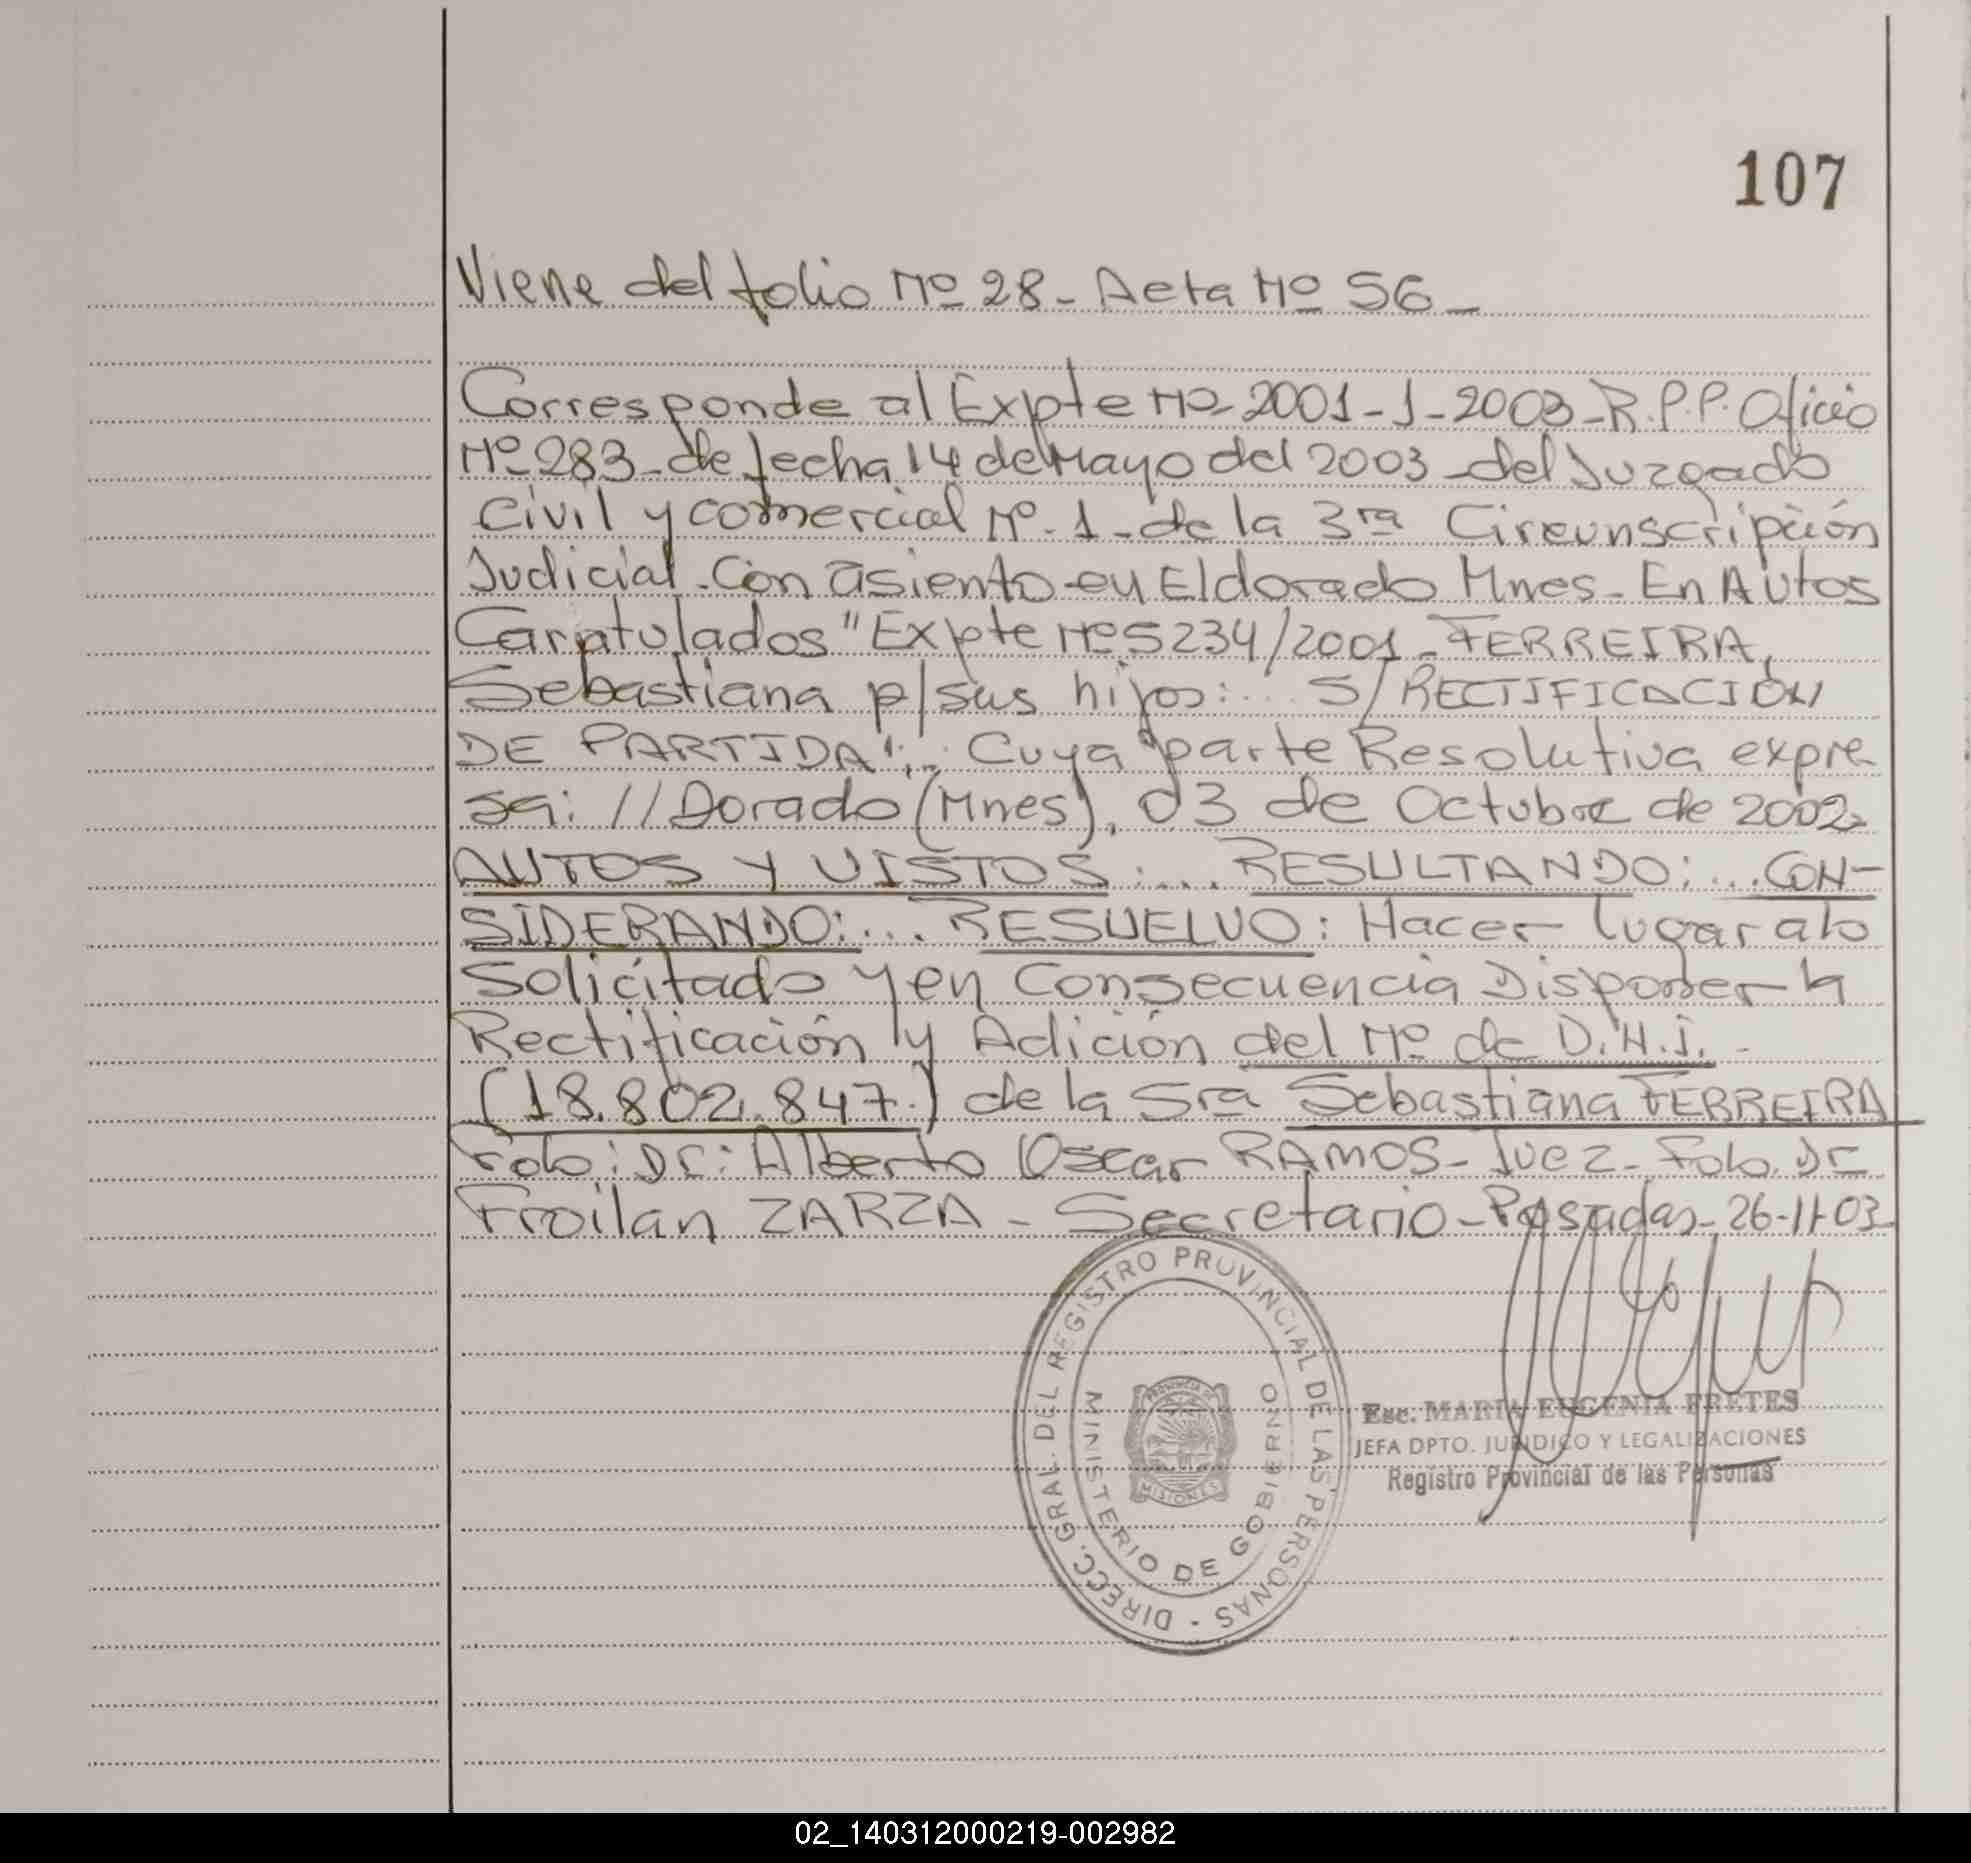 107
Viene del folio Nº 28 - Acta Nº 56 -
Corresponde al Expte Nº 2001 - J - 2003 - R.P.P. Oficio
Nº 283 - de fecha 14 de Mayo del 2003 - del Juzgado
Civil y comercial Nº. 1 - de la 3ra Circunscripción
Judicial. Con asiento en Eldorado Mnes - En Autos
Caratulados "Expte Nº 5234/2001 - FERREIRA,
Sebastiana p/sus hijos: ... S/ RECTIFICACIÓN
DE PARTIDA"... Cuya parte Resolutiva expre-
sa: // Dorado (Mnes), 03 de Octubre de 2002
AUTOS Y VISTOS: ... RESULTANDO: ... CON-
SIDERANDO: ... RESUELVO: Hacer lugar a lo
Solicitado y en Consecuencia Disponer la
Rectificación y Adición del Nº de D.N.I. -
(18.802.847.) de la Sra Sebastiana FERREIRA
Fdo: Dr: Alberto Oscar RAMOS - Juez - Fdo. Dr
Froilan ZARZA - Secretario - Posadas - 26-11-03
DIRECC. GRAL. DEL REGISTRO PROVINCIAL DE LAS PERSONAS -
MINISTERIO DE GOBIERNO
PROVINCIA DE
MISIONES
Esc. MARIA EUGENIA FRETES
JEFA DPTO. JURIDICO Y LEGALIZACIONES
Registro Provincial de las Personas
02_140312000219-002982